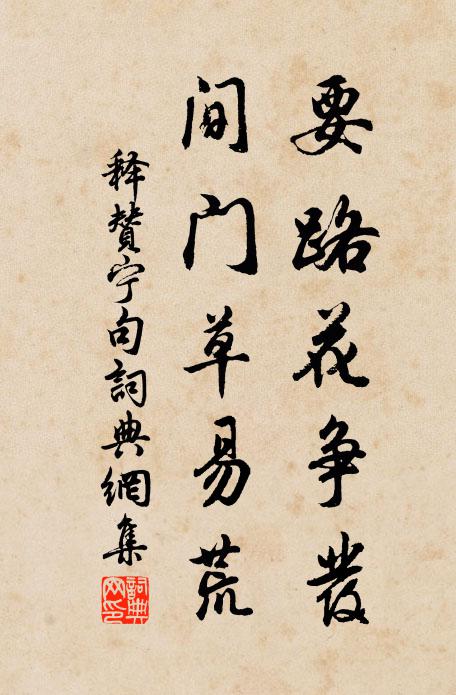 要路花争發
间门草易荒
释賛宁句詞典網集
詞典网印